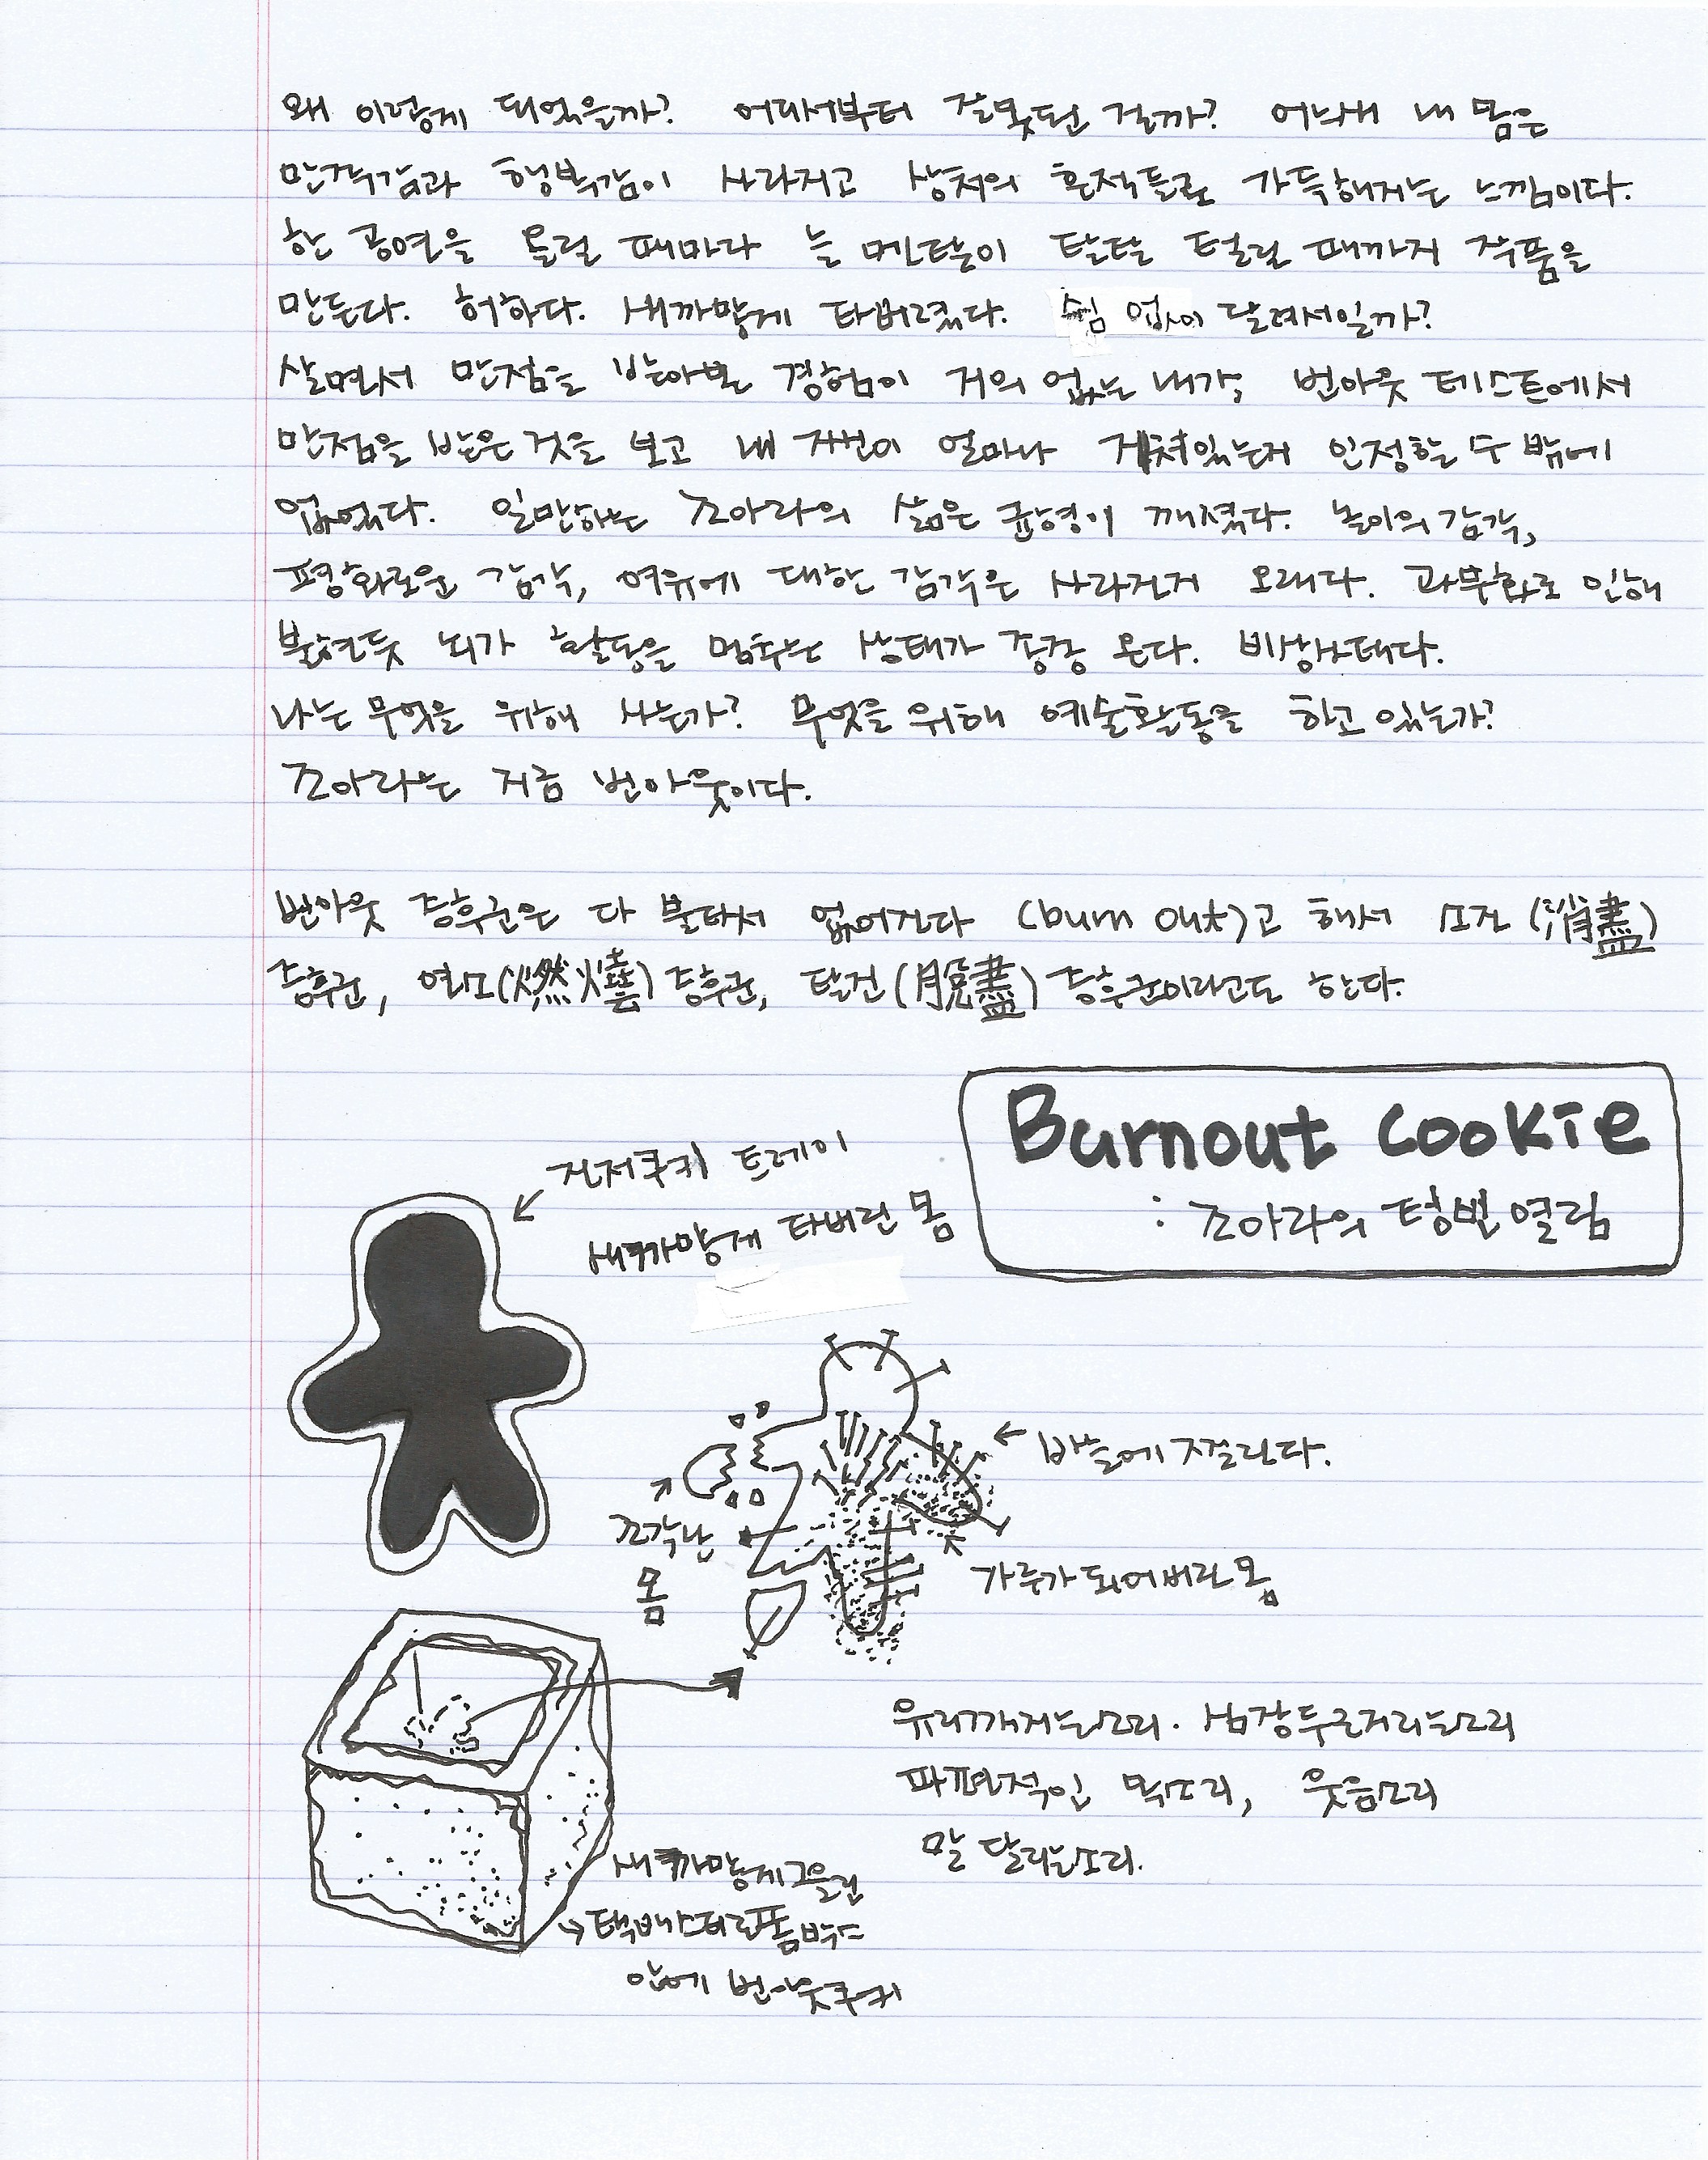 왜 이렇게 되었을까? 어디서부터 잘못된 걸까? 어느새 내 몸은
만족감과 행복감이 사라지고 상처의 흔적들로 가득해지는 느낌이다.
한 공연을 올릴 때마다 늘 멘탈이 탈탈 털릴 때까지 작품을
만든다. 허하다. 새까맣게 타버렸다. 쉼 없이 달려서일까?
살면서 만점을 받아본 경험이 거의 없는 내가, 번아웃 테스트에서
만점을 받은 것을 보고 내 자신이 얼마나 지쳐있는지 인정할 수 밖에
없었다. 일만하는 조아라의 삶은 균형이 깨졌다. 놀이의 감각,
평화로운 감각, 여유에 대한 감각은 사라진지 오래다. 과부화로 인해
불현듯 뇌가 활동을 멈추는 상태가 종종 온다. 비상사태다.
나는 무엇을 위해 사는가? 무엇을 위해 예술활동을 하고 있는가?
조아라는 지금 번아웃이다.
번아웃 증후군은 다 불타서 없어진다 (burn out)고 해서 소진 (消盡)
증후군, 연소(燃燒) 증후군, 탈진(脫盡) 증후군이라고도 한다.
Burnout cookie
: 조아라의 텅빈 열림
진저쿠키 트레이
새까맣게 타버린 몸
바늘에 찔린다.
조각난
몸
가루가 되어버린 몸
유리깨지는소리. 심장두근거리는소리
파편적인 목소리, 웃음소리
말 달리는소리.
새까맣게그을린
택배스티로폼박스
안에 번아웃쿠키